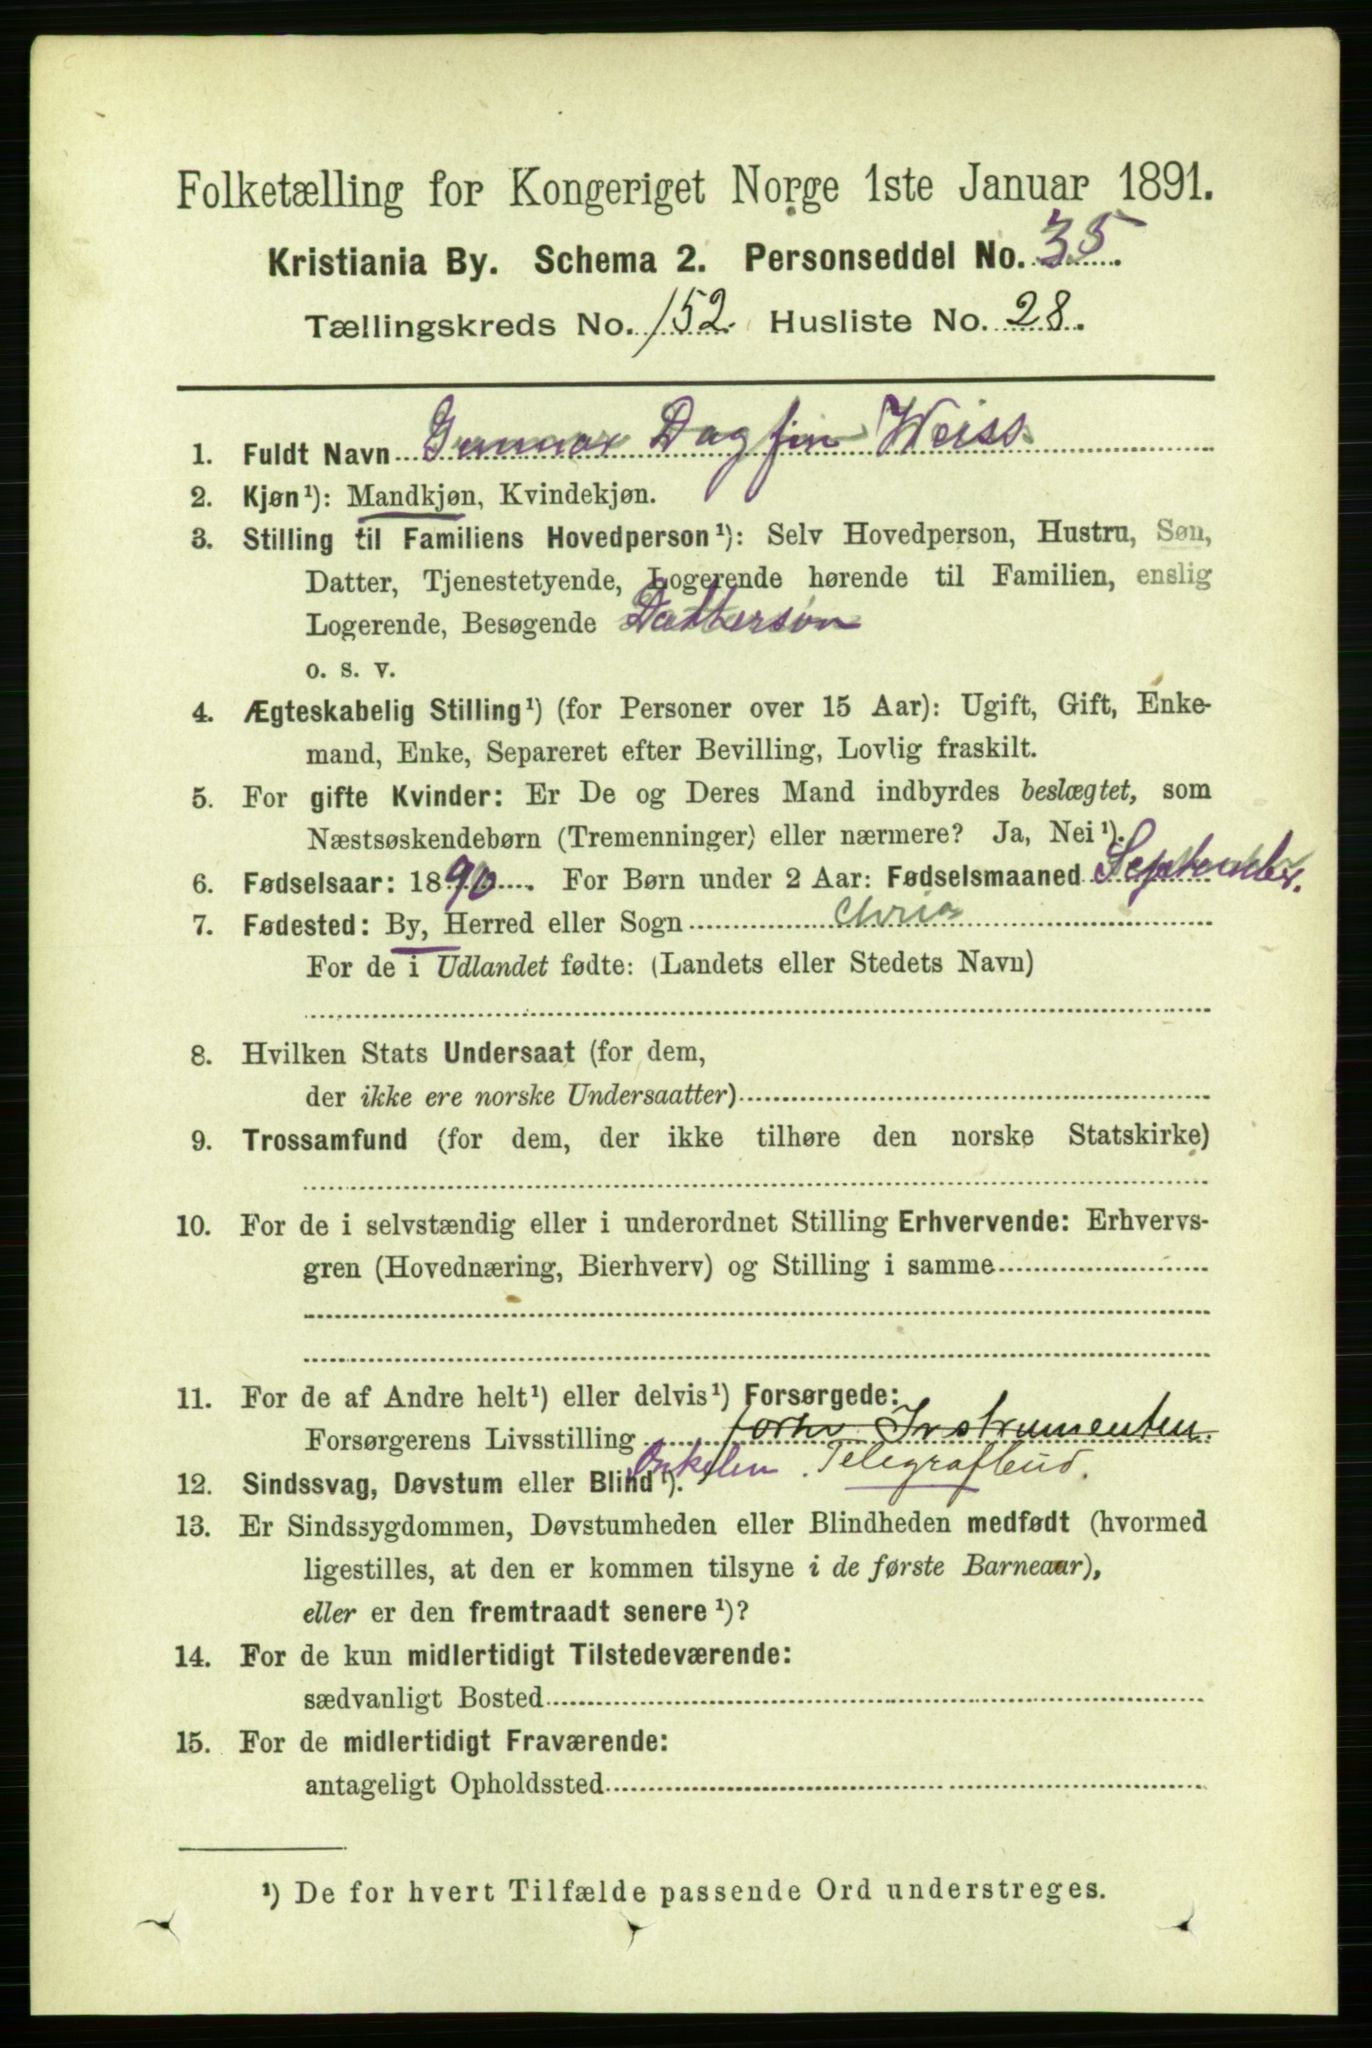 Folketælling for Kongeriget Norge 1ste Januar 1891.
Kristiania By. Schema 2. Personseddel No. 35.
Tællingskreds No. 152. Husliste No. 28.
1. Fuldt Navn Gunnar Dagfin Weiss
2. Kjøn¹): Mandkjøn, Kvindekjøn.
3. Stilling til Familiens Hovedperson¹): Selv Hovedperson, Hustru, Søn,
Datter, Tjenestetyende, Logerende hørende til Familien, enslig
Logerende, Besøgende Dattersøn
o. s. v.
4. Ægteskabelig Stilling¹) (for Personer over 15 Aar): Ugift, Gift, Enke-
mand, Enke, Separeret efter Bevilling, Lovlig fraskilt.
5. For gifte Kvinder: Er De og Deres Mand indbyrdes beslægtet, som
Næstsøskendebørn (Tremenninger) eller nærmere? Ja, Nei¹).
6. Fødselsaar: 1890. For Børn under 2 Aar: Fødselsmaaned September.
7. Fødested: By, Herred eller Sogn Chria
For de i Udlandet fødte: (Landets eller Stedets Navn)
8. Hvilken Stats Undersaat (for dem,
der ikke ere norske Undersaatter)
9. Trossamfund (for dem, der ikke tilhøre den norske Statskirke)
10. For de i selvstændig eller i underordnet Stilling Erhvervende: Erhvervs-
gren (Hovednæring, Bierhverv) og Stilling i samme
11. For de af Andre helt¹) eller delvis¹) Forsørgede:
Forsørgerens Livsstilling forhv. Instrumenten.
Onkelen. Telegrafbud.
12. Sindssvag, Døvstum eller Blind¹).
13. Er Sindssygdommen, Døvstumheden eller Blindheden medfødt (hvormed
ligestilles, at den er kommen tilsyne i de første Barneaar),
eller er den fremtraadt senere¹)?
14. For de kun midlertidigt Tilstedeværende:
sædvanligt Bosted
15. For de midlertidigt Fraværende:
antageligt Opholdssted
¹) De for hvert Tilfælde passende Ord understreges.